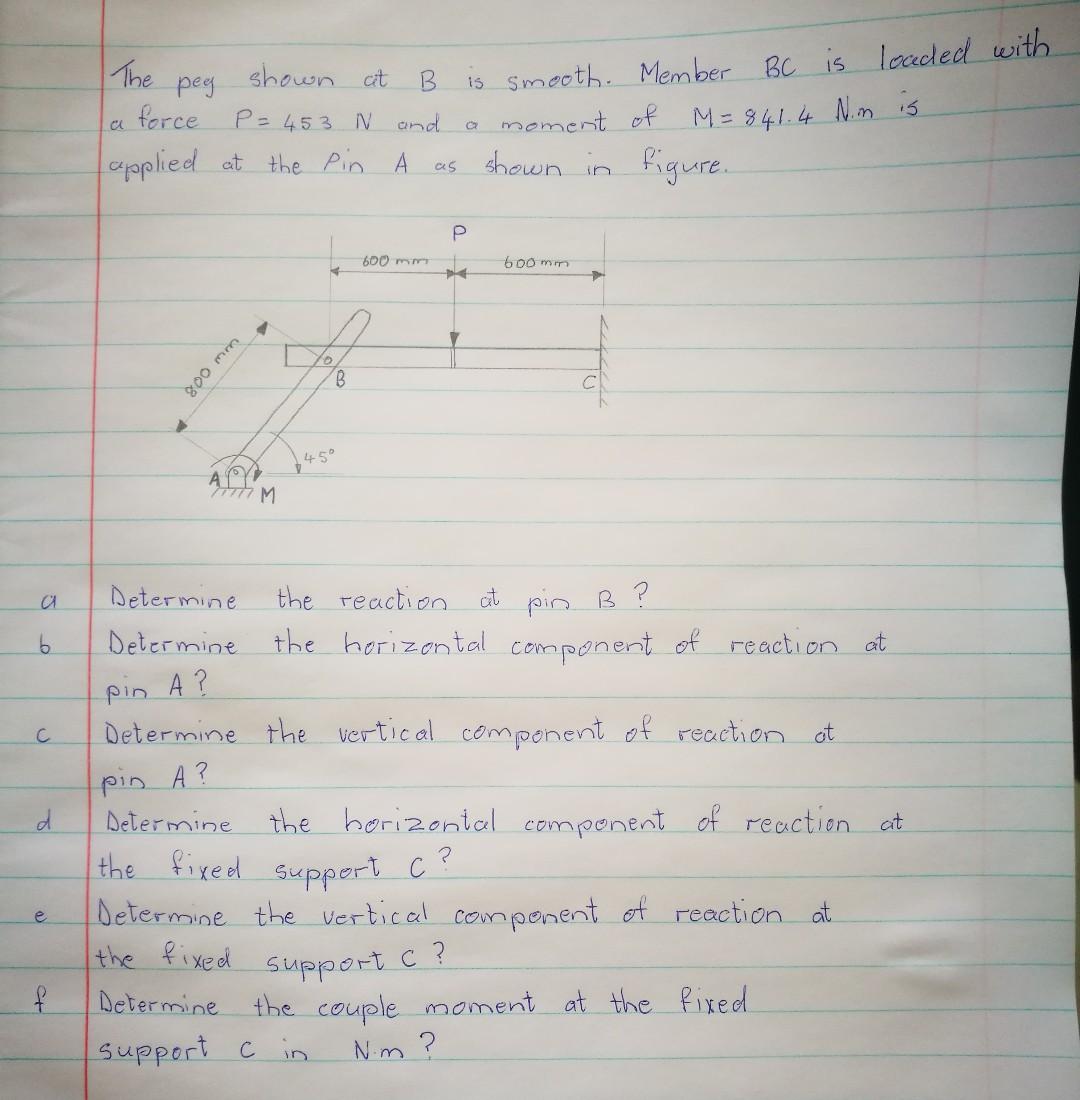 The peg shown at B is smooth. Member BC is loaded with
a force P = 453 N and a moment of M = 841.4 N.m is
applied at the Pin A as shown in figure.
P
600 mm 600 mm
800 mm
B
C
45°
A
M
a Determine the reaction at pin B ?
b Determine the horizontal component of reaction at
pin A ?
c Determine the vertical component of reaction at
pin A ?
d Determine the horizontal component of reaction at
the fixed support C ?
e Determine the vertical component of reaction at
the fixed support C ?
f Determine the couple moment at the fixed
support C in N.m ?